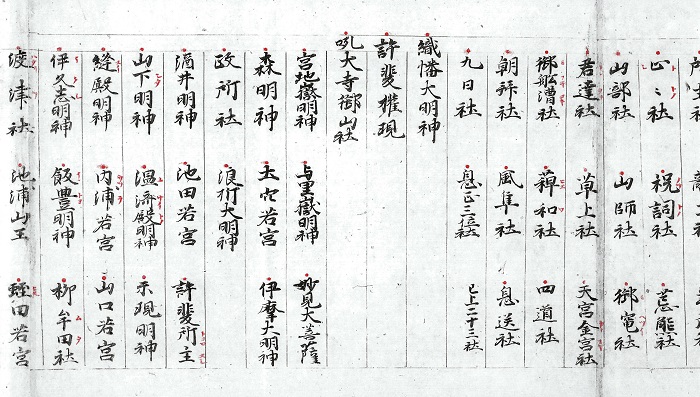 祝詞社 荒熊社
山部社 山師社 御竃社
君達社 草上社 天宮金宮社
御舩漕社 蒋和社 四道社
朝拜社 風隼社 息送社
九日社 息正三位社 已上二十三社
織幡大明神
許斐權現
吼大寺御山社
宮地嶽明神 与里嶽明神 妙見大菩薩
森明神 土穴若宮 伊摩大明神
政所社 浪折大明神
涌井明神 池田若宮 許斐所主
山下明神 温済殿明神 示現明神
縫殿明神 内浦若宮 山口若宮
伊久志明神 飯豊明神 柳牟田社
波津社 池浦山王 蛭田若宮